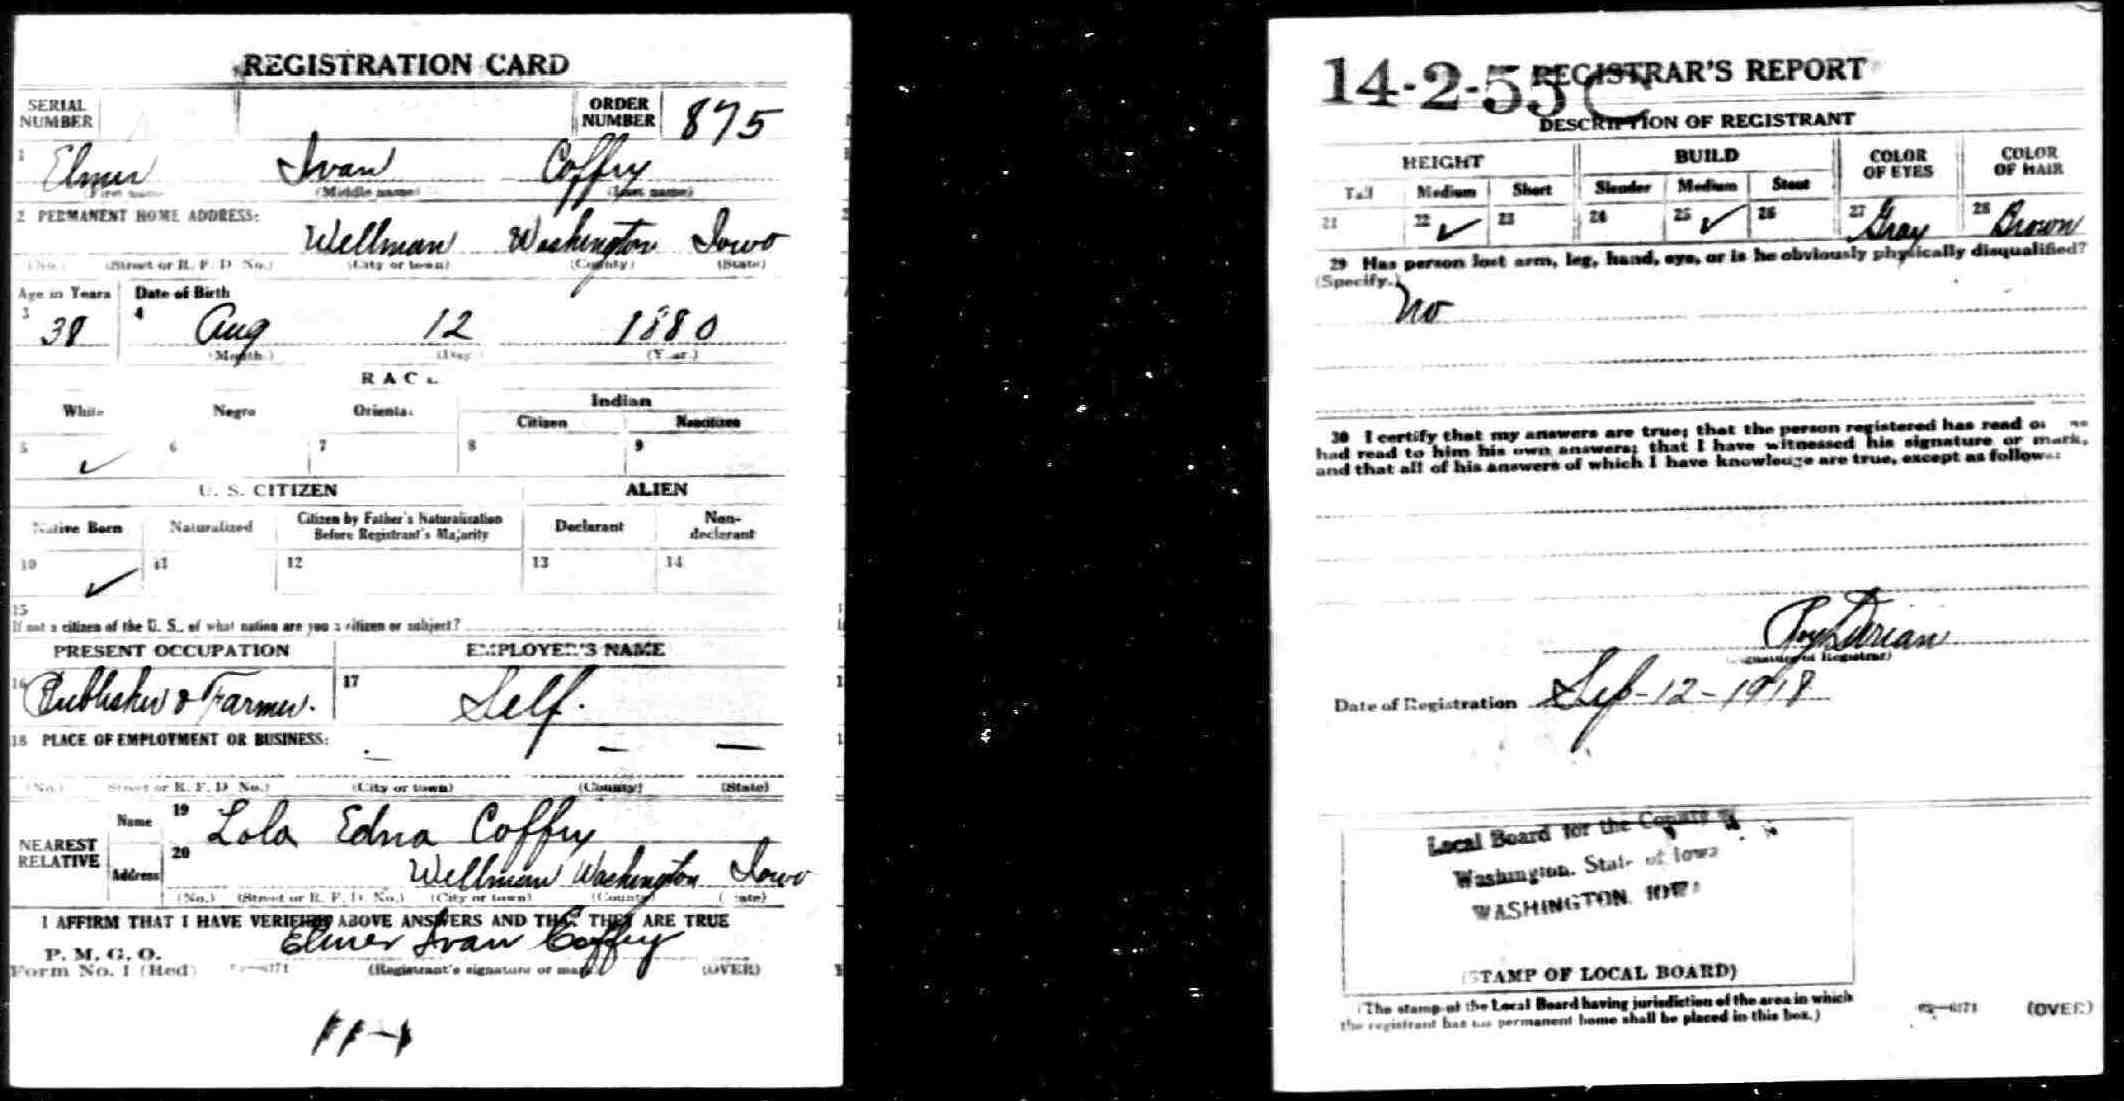 REGISTRATION CARD
SERIAL NUMBER
ORDER NUMBER 875
1 Elmer Ivan Coffey
(First name) (Middle name) (Last name)
2 PERMANENT HOME ADDRESS:
Wellman Washington Iowa
(No.) (Street or R. F. D. No.) (City or town) (County) (State)
Age in Years Date of Birth
3 38 4 Aug 12 1880
(Month.) (Day.) (Year.)
RACE
White Negro Oriental Indian
Citizen Noncitizen
5 ✓ 6 7 8 9
U. S. CITIZEN ALIEN
Native Born Naturalized Citizen by Father's Naturalization Before Registrant's Majority Declarant Non-declarant
10 ✓ 11 12 13 14
15
If not a citizen of the U. S., of what nation are you a citizen or subject?
PRESENT OCCUPATION EMPLOYER'S NAME
16 Publisher & Farmer. 17 Self.
18 PLACE OF EMPLOYMENT OR BUSINESS:
— — —
(No.) (Street or R. F. D. No.) (City or town) (County) (State)
NEAREST RELATIVE
Name 19 Lola Edna Coffey
Address 20 Wellman Washington Iowa
(No.) (Street or R. F. D. No.) (City or town) (County) (State)
I AFFIRM THAT I HAVE VERIFIED ABOVE ANSWERS AND THAT THEY ARE TRUE
P. M. G. O.
Form No. 1 (Red) Elmer Ivan Coffey
(Registrant's signature or mark) (OVER)
11-1
14-2-55 C
REGISTRAR'S REPORT
DESCRIPTION OF REGISTRANT
HEIGHT BUILD COLOR OF EYES COLOR OF HAIR
Tall Medium Short Slender Medium Stout
21 22 ✓ 23 24 25 ✓ 26 27 Gray 28 Brown
29 Has person lost arm, leg, hand, eye, or is he obviously physically disqualified?
(Specify.)
No
30 I certify that my answers are true; that the person registered has read or
had read to him his own answers; that I have witnessed his signature or mark,
and that all of his answers of which I have knowledge are true, except as follows:
(Signature of Registrar)
Date of Registration Sep-12-1918
Local Board for the County of
Washington, State of Iowa
WASHINGTON, IOWA
(STAMP OF LOCAL BOARD)
(The stamp of the Local Board having jurisdiction of the area in which
the registrant has his permanent home shall be placed in this box.)
(OVER)